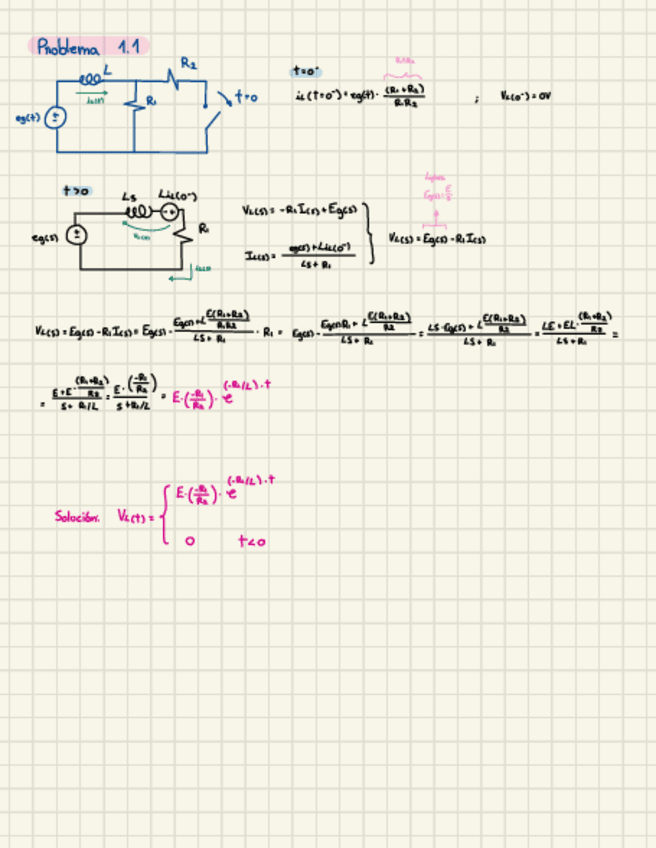 Problema 1.1
L
R₂
iL(t)
R₁
t=0
eg(t)
t=0⁻
iL(t=0⁻) = eg(t) · (R₁+R₂)/(R₁·R₂) ; VL(0⁻) = 0V
t>0
Ls LiL(0⁻)
eg(s)
VL(s)
R₁
IL(s)
VL(s) = -R₁IL(s) + Eg(s)
IL(s) = (eg(s) + LiL(0⁻))/(LS + R₁)
Eg(s) = E/s
VL(s) = Eg(s) - R₁IL(s)
VL(s) = Eg(s) - R₁IL(s) = Eg(s) - (Eg(s) + L E(R₁+R₂)/(R₁R₂))/(LS + R₁) · R₁ = Eg(s) - (Eg(s)R₁ + L E(R₁+R₂)/R₂)/(LS + R₁) = (LS·Eg(s) + L E(R₁+R₂)/R₂)/(LS + R₁) = (LE + EL · (R₁+R₂)/R₂)/(LS + R₁) =
= (E + E · (R₁+R₂)/R₂)/(S + R₁/L) = (E · (-R₁/R₂))/(S + R₁/L) = E·(-R₁/R₂) · e^(-R₁/L)·t
Solución: VL(t) = { E·(-R₁/R₂) · e^(-R₁/L)·t
0 t<0